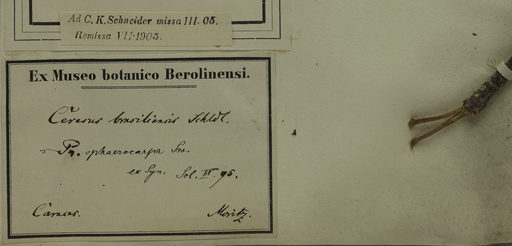 Ad C. K. Schneider missa III. 05.
Remissa VII. 1905.
Ex Museo botanico Berolinensi.
Cerasus brasiliensis Schldl.
Pr. sphaerocarpa Sw.
ex Syn. Sol. IV 95.
Caracas. Moritz.